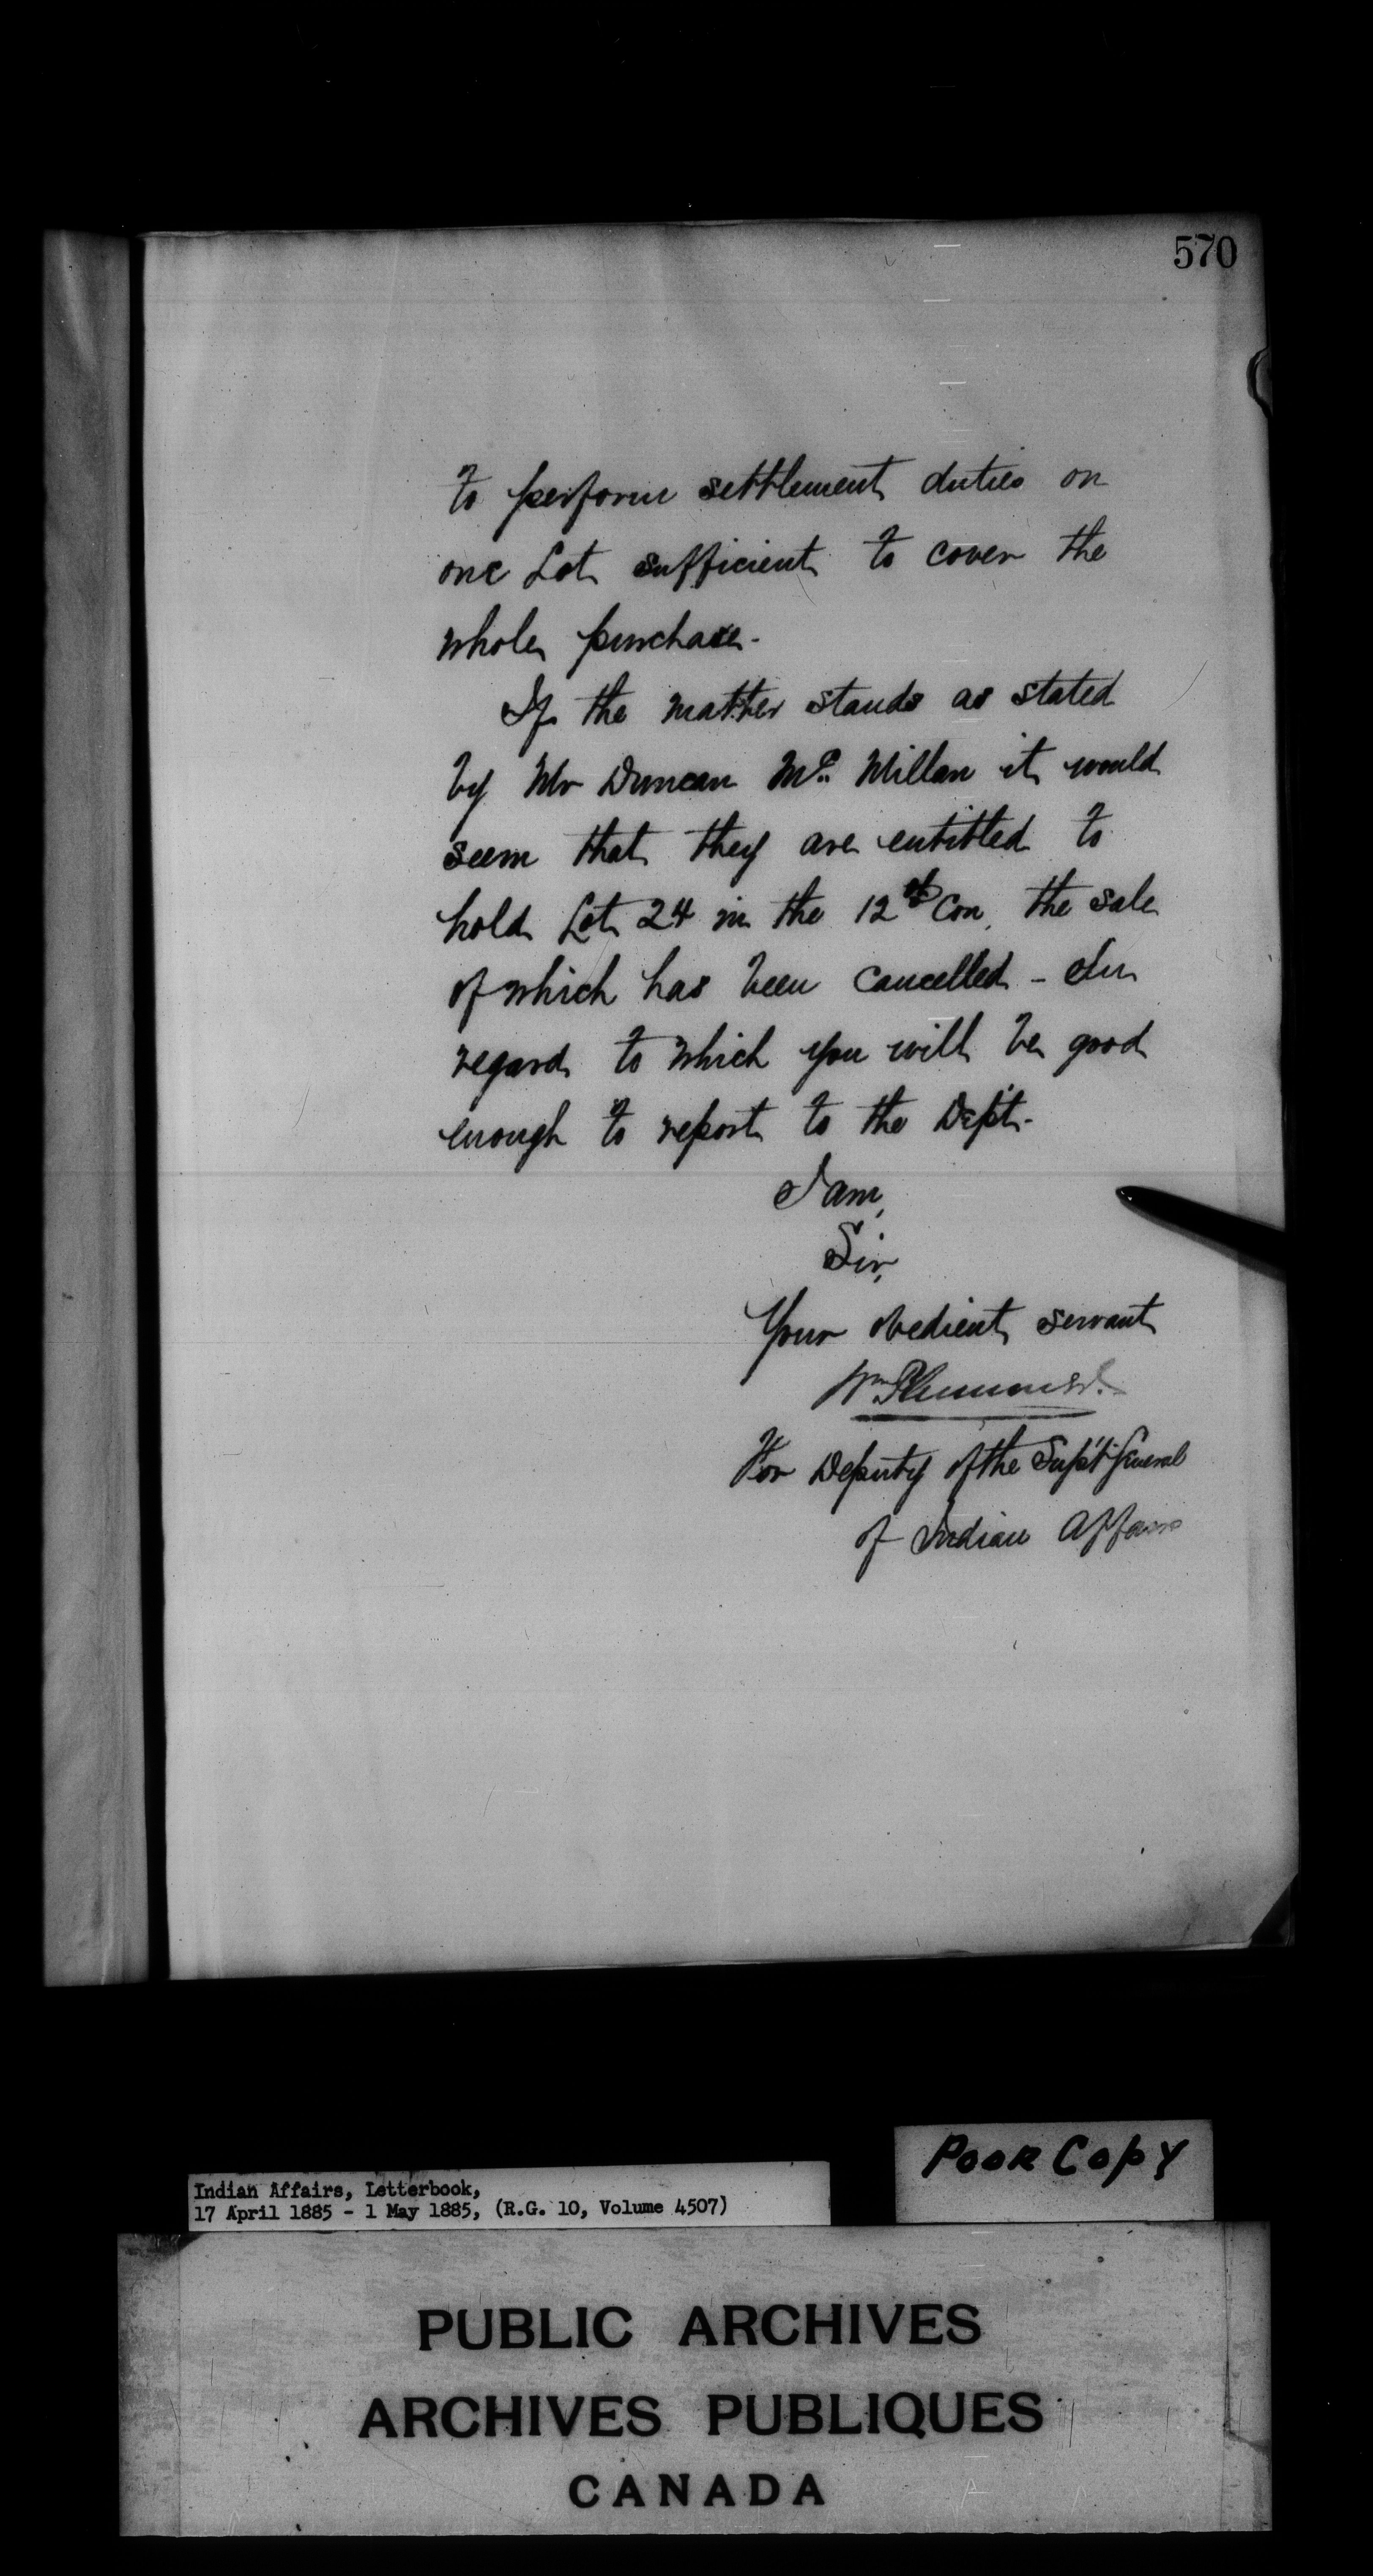 570
to perform settlement duties on
one Lot sufficient to cover the
whole purchase.
If the matter stands as stated
by Mr Duncan Mc. Millan it would
seem that they are entitled to
hold Lot 24 in the 12th Con, the sale
of which has been cancelled - In
regard to which you will be good
enough to report to the Dept.
I am,
Sir,
Your obedient servant
Wm Plummer.
For Deputy of the Sup't General
of Indian Affairs
Poor Copy
Indian Affairs, Letterbook,
17 April 1885 - 1 May 1885, (R.G. 10, Volume 4507)
PUBLIC ARCHIVES
ARCHIVES PUBLIQUES
CANADA